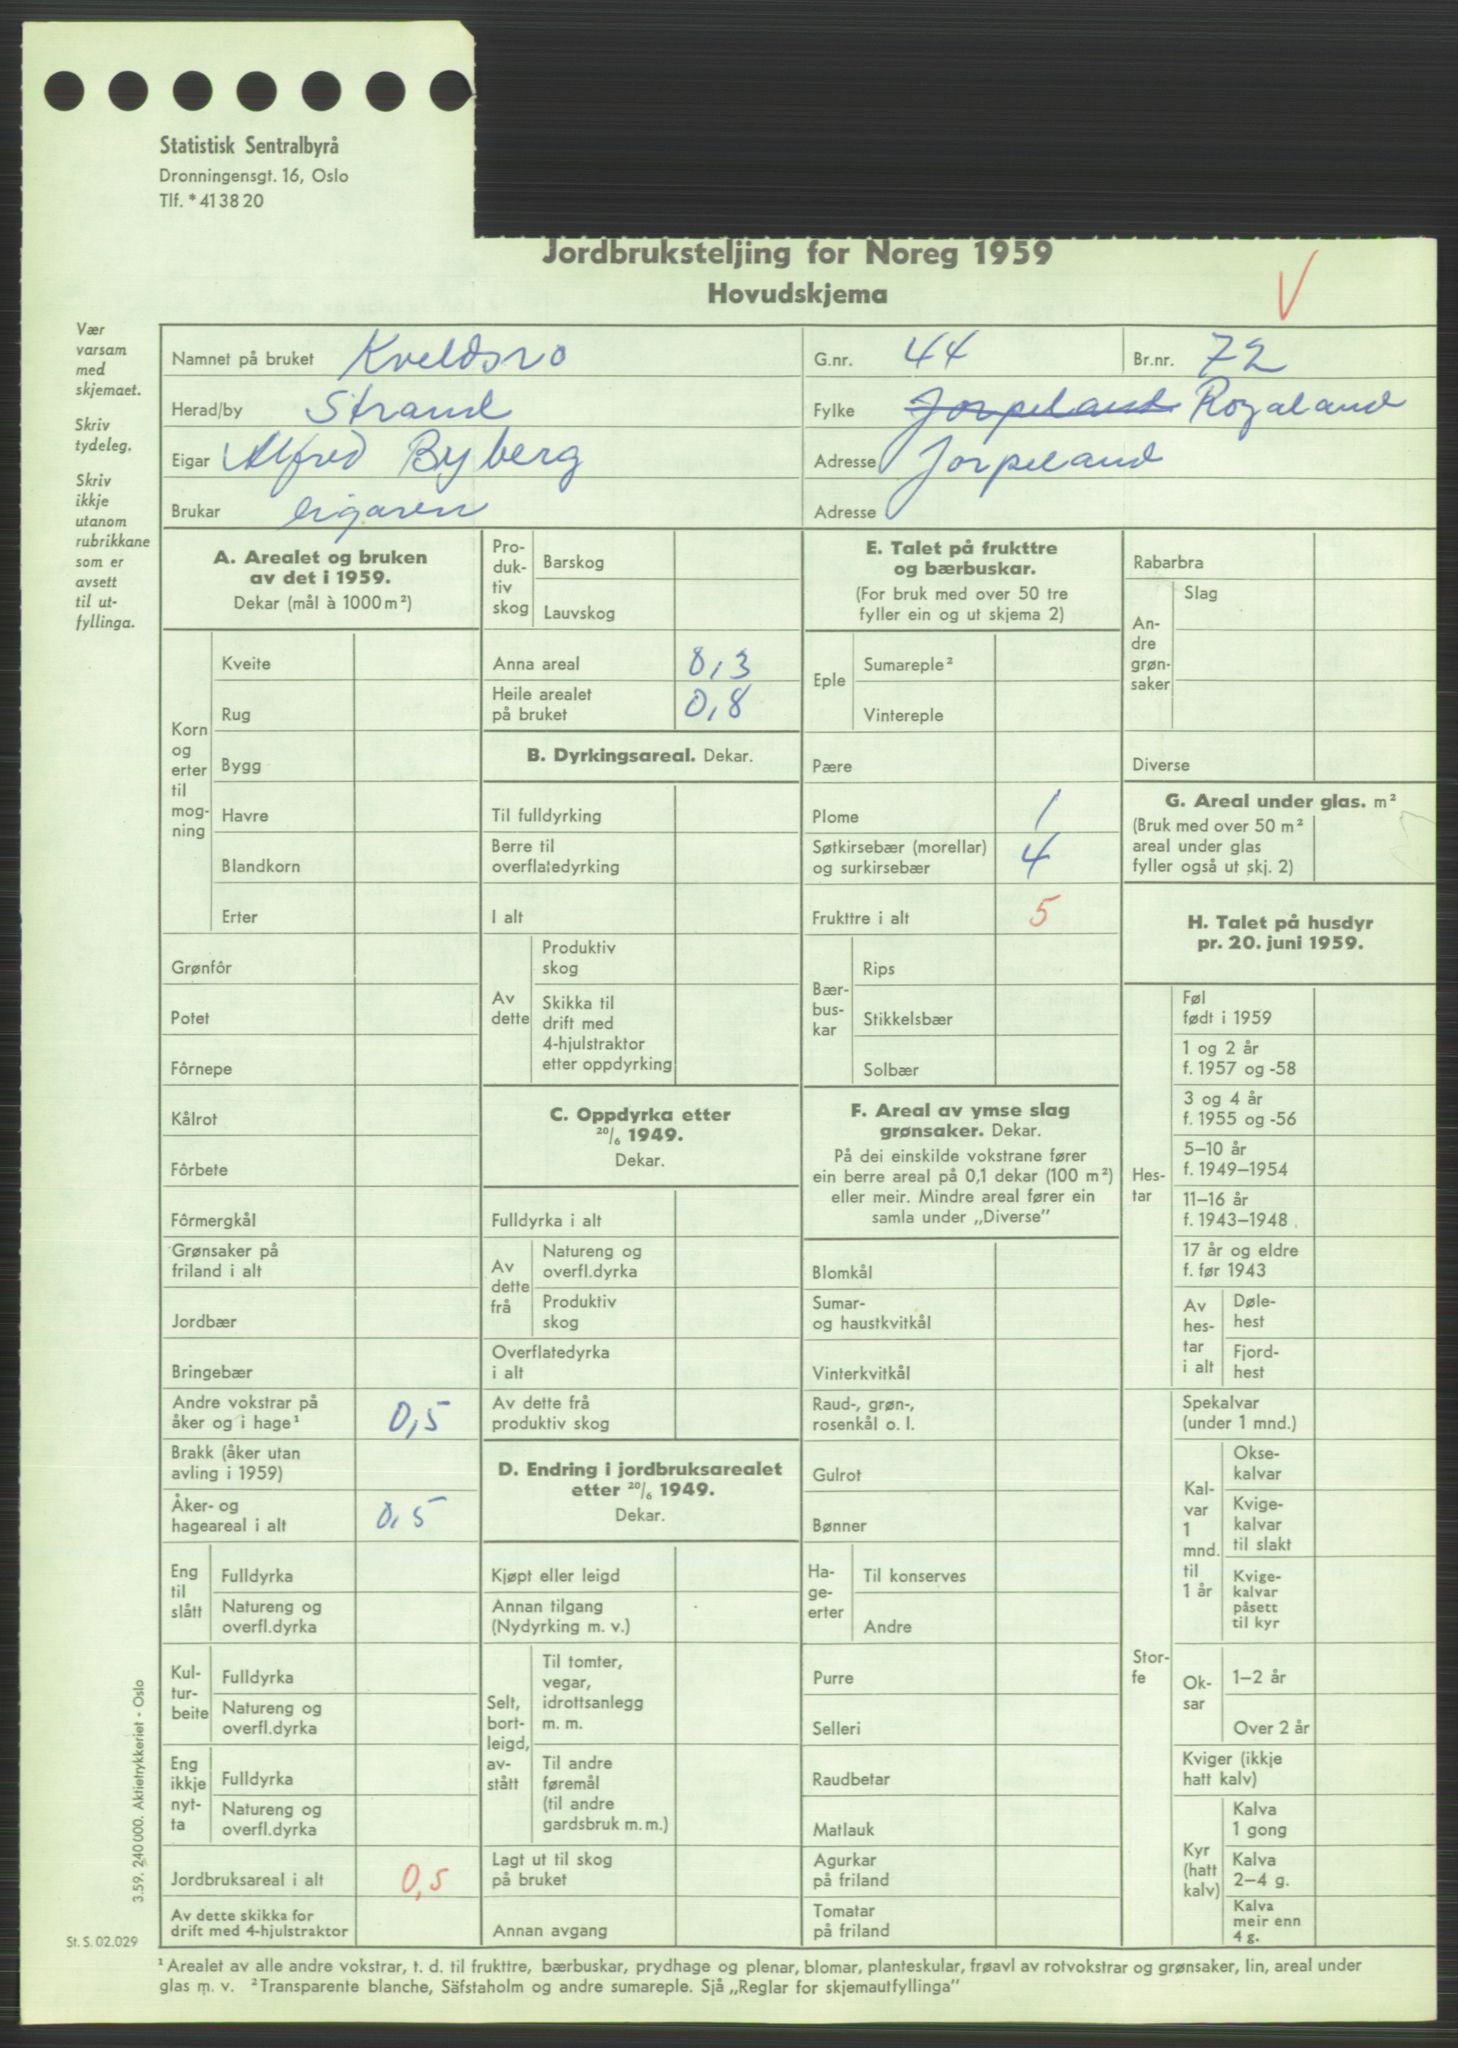 Statistisk Sentralbyrå
Dronningensgt. 16, Oslo
Tlf. *41 38 20
Jordbruksteljing for Noreg 1959
Hovudskjema
V
Vær
varsam
med
skjemaet.
Skriv
tydeleg.
Skriv
ikkje
utanom
rubrikkane
som er
avsett
til ut-
fyllinga.
Namnet på bruket Kveldsro
G.nr. 44
Br.nr. 72
Herad/by Strand
Fylke Jorpeland Rogaland
Eigar Alfred Byberg
Adresse Jorpeland
Brukar eigaren
Adresse
A. Arealet og bruken
av det i 1959.
Dekar (mål à 1000 m²)
Korn
og
erter
til
mog-
ning
Kveite
Rug
Bygg
Havre
Blandkorn
Erter
Grønfôr
Potet
Fôrnepe
Kålrot
Fôrbete
Fôrmergkål
Grønsaker på
friland i alt
Jordbær
Bringebær
Andre vokstrar på
åker og i hage¹ 0,5
Brakk (åker utan
avling i 1959)
Åker- og
hageareal i alt 0,5
Eng
til
slått
Fulldyrka
Natureng og
overfl.dyrka
Kul-
tur-
beite
Fulldyrka
Natureng og
overfl.dyrka
Eng
ikkje
nyt-
ta
Fulldyrka
Natureng og
overfl.dyrka
Jordbruksareal i alt 0,5
Av dette skikka for
drift med 4-hjulstraktor
Pro-
duk-
tiv
skog
Barskog
Lauvskog
Anna areal 0,3
Heile arealet
på bruket 0,8
B. Dyrkingsareal. Dekar.
Til fulldyrking
Berre til
overflatedyrking
I alt
Av
dette
Produktiv
skog
Skikka til
drift med
4-hjulstraktor
etter oppdyrking
C. Oppdyrka etter
20/6 1949.
Dekar.
Fulldyrka i alt
Av
dette
frå
Natureng og
overfl.dyrka
Produktiv
skog
Overflatedyrka
i alt
Av dette frå
produktiv skog
D. Endring i jordbruksarealet
etter 20/6 1949.
Dekar.
Kjøpt eller leigd
Annan tilgang
(Nydyrking m. v.)
Selt,
bort-
leigd,
av-
stått
Til tomter,
vegar,
idrottsanlegg
m. m.
Til andre
føremål
(til andre
gardsbruk m. m.)
Lagt ut til skog
på bruket
Annan avgang
E. Talet på frukttre
og bærbuskar.
(For bruk med over 50 tre
fyller ein og ut skjema 2)
Eple
Sumareple²
Vintereple
Pære
Plome 1
Søtkirsebær (morellar)
og surkirsebær 4
Frukttre i alt 5
Bær-
bus-
kar
Rips
Stikkelsbær
Solbær
F. Areal av ymse slag
grønsaker. Dekar.
På dei einskilde vokstrane fører
ein berre areal på 0,1 dekar (100 m²)
eller meir. Mindre areal fører ein
samla under „Diverse”
Blomkål
Sumar-
og haustkvitkål
Vinterkvitkål
Raud-, grøn-,
rosenkål o. l.
Gulrot
Bønner
Ha-
ge-
erter
Til konserves
Andre
Purre
Selleri
Raudbetar
Matlauk
Agurkar
på friland
Tomatar
på friland
Rabarbra
An-
dre
grøn-
saker
Slag
Diverse
G. Areal under glas. m²
(Bruk med over 50 m²
areal under glas
fyller også ut skj. 2)
H. Talet på husdyr
pr. 20. juni 1959.
Hes-
tar
Føl
født i 1959
1 og 2 år
f. 1957 og -58
3 og 4 år
f. 1955 og -56
5–10 år
f. 1949–1954
11–16 år
f. 1943–1948
17 år og eldre
f. før 1943
Av
hes-
tar
i alt
Døle-
hest
Fjord-
hest
Stor-
fe
Spekalvar
(under 1 mnd.)
Kal-
var
1
mnd.
til
1 år
Okse-
kalvar
Kvige-
kalvar
til slakt
Kvige-
kalvar
påsett
til kyr
Ok-
sar
1–2 år
Over 2 år
Kviger (ikkje
hatt kalv)
Kyr
(hatt
kalv)
Kalva
1 gong
Kalva
2–4 g.
Kalva
meir enn
4 g.
3.59. 240 000. Aktietrykkeriet - Oslo
St. S. 02.029
¹ Arealet av alle andre vokstrar, t. d. til frukttre, bærbuskar, prydhage og plenar, blomar, planteskular, frøavl av rotvokstrar og grønsaker, lin, areal under
glas m. v. ² Transparente blanche, Säfstaholm og andre sumareple. Sjå „Reglar for skjemautfyllinga”